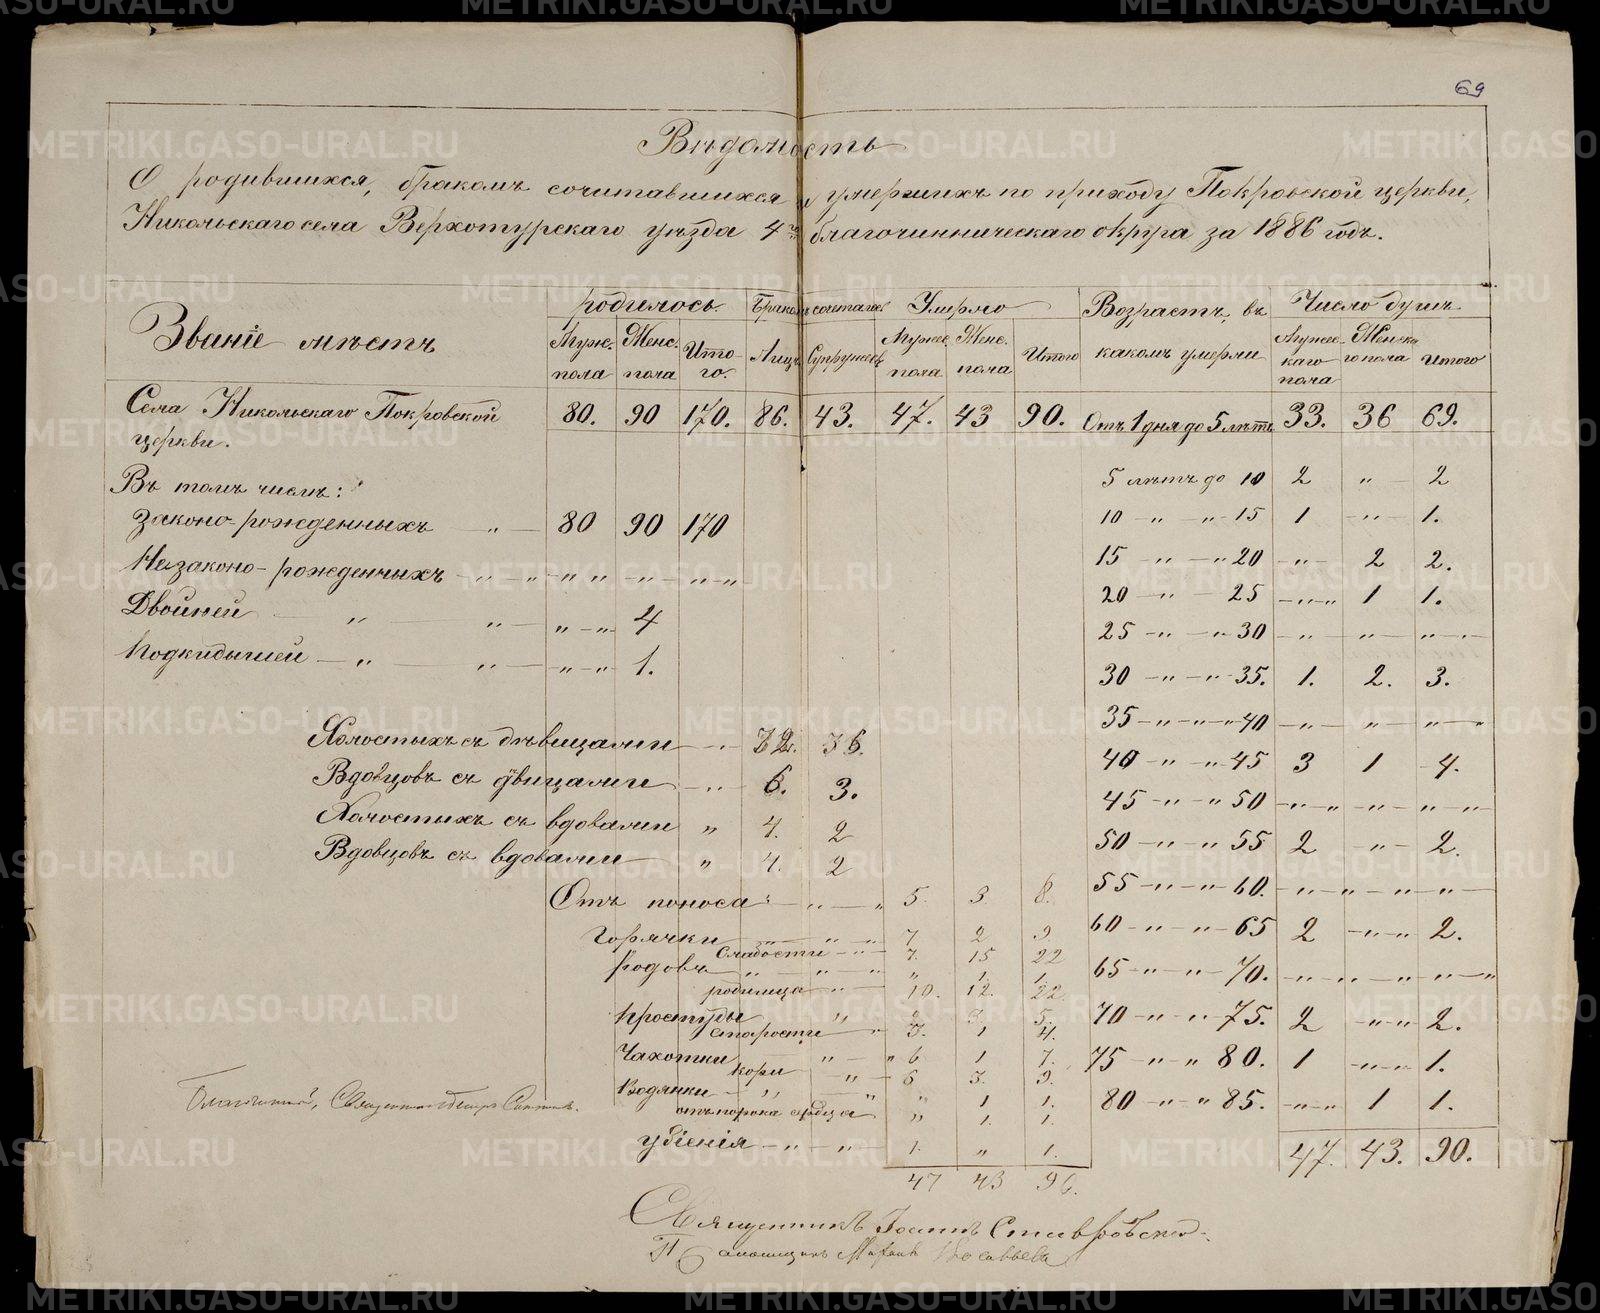 69
Вѣдомость
О родившихся, бракомъ сочитавшихся и умершихъ по приходу Покровской церкви,
Никольскаго села Верхотурскаго уѣзда 4го благочинническаго округа за 1886 годъ.
Званіе мѣстъ родилось. Бракомъ сочеталось Умерло Возрастъ, въ Число душъ
Муже. Женс. Ито- Лицъ Супружествъ Мужес. Женс. Итого какомъ умерли Мужес- Женска Итого
пола пола го. пола пола каго го пола
пола
Села Никольскаго Покровской 80. 90 170. 86. 43. 47. 43 90. Отъ 1 дня до 5 лѣтъ 33. 36 69.
церкви.
Въ томъ числѣ: 5 лѣтъ до 10 2 „ 2
Законо-рожденныхъ — „ — 80 90 170 10 — „ — „ — 15 1 — „ — 1.
Незаконо-рожденныхъ — „ — „ — „ „ — „ — „ — „ 15 — „ — „ 20 — „ — 2 2.
Двойней — „ — „ — „ — „ — 4 20 — „ — 25 — „ — „ 1 1.
25 — „ — „ 30 — „ — „ — „ — „ —
Подкидышей — „ — „ — „ — „ — 1. 30 — „ — „ — 35. 1. 2. 3.
35 — „ — „ — „ 40 — „ — „ — „ — „
Холостыхъ съ дѣвицами — „ 72. 36. 40 — „ — „ 45 3 1 4.
Вдовцовъ съ дѣвицами — „ 6. 3. 45 — „ — „ 50 — „ — „ — „ — „ — „
Холостыхъ съ вдовами „ 4. 2 50 — „ — „ 55 2 — „ — 2.
Вдовцовъ съ вдовами — „ 4. 2 55 — „ — „ 60. — „ — „ — „ — „
Отъ поноса — „ — „ 5. 3 8.
Горячки — „ — „ — „ 7 2 9 60 — „ — „ — 65 2 — „ — „ 2.
Слабости — „ — 7. 15 22
Родовъ — „ — „ — „ „ 1. 1. 65 — „ — „ — 70. — „ — „ — „ — „
родимца — „ — 10. 12. 22
Простуды „ 2 3. 5. 70 — „ — „ 75. 2 — „ — „ 2.
Старости „ 3. 1 4.
Чахотки — „ — „ 6 1 7. 75 — „ — „ 80. 1 — „ — „ 1.
кори — „ — 6 3. 9.
Водянки — „ — „ „ 1 1. 80 — „ — „ 85. — „ — „ 1 1.
отъ порока сердца „ 1. 1.
Благочинный, Священникъ
убіенія — „ — „ — 1. „ 1. 47. 43. 90.
47 43 90.
Священникъ Іоаннъ Ставровскій.
Псаломщикъ